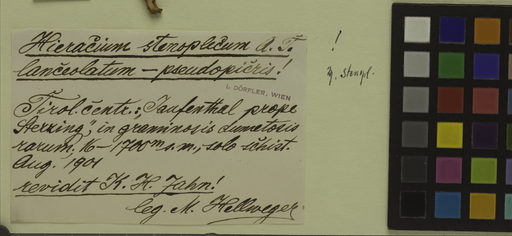 Hieracium stenoplecum A. T.
lanceolatum — pseudopicris!
I. DÖRFLER, WIEN
Tirol. centr.: Jaufenthal prope
Sterzing, in graminosis dumetosis
rarum, 16–1700 m s.m., solo schist.
Aug. 1901
revidit K. H. Zahn!
leg. M. Hellweger
!